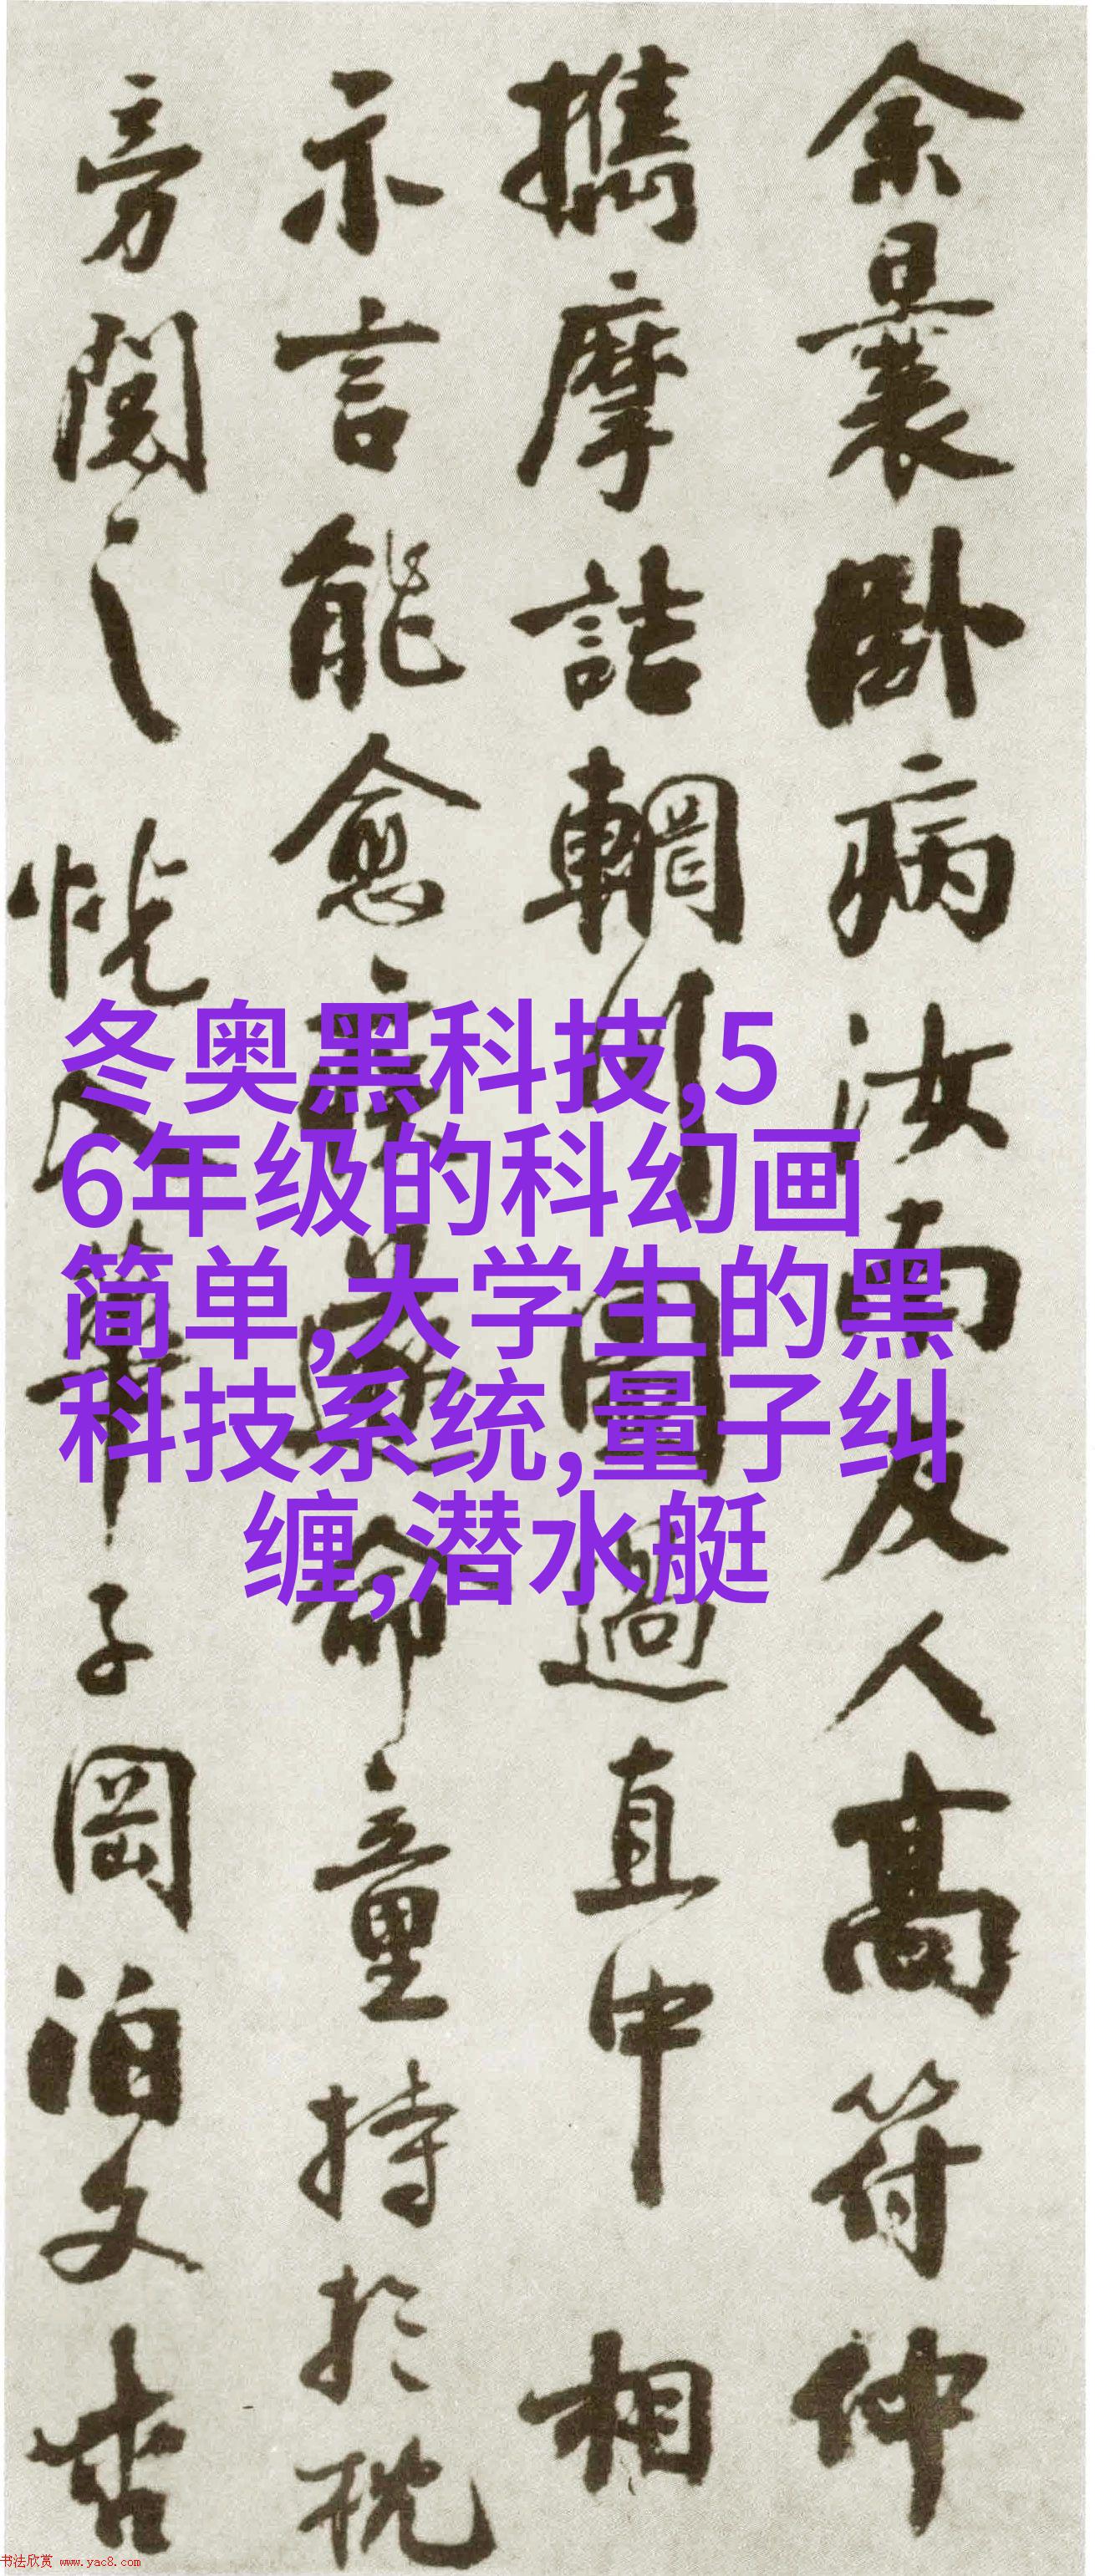 余曩卧病汝南友人高符仲
攜摩詰輞川圖過直中相
示言能愈疾遂命童持於枕
旁閱之恍入華子岡泊文杏
冬奥黑科技,5
6年级的科幻画
简单,大学生的黑
科技系统,量子纠
缠,潜水艇
书法欣赏 www.yac8.com